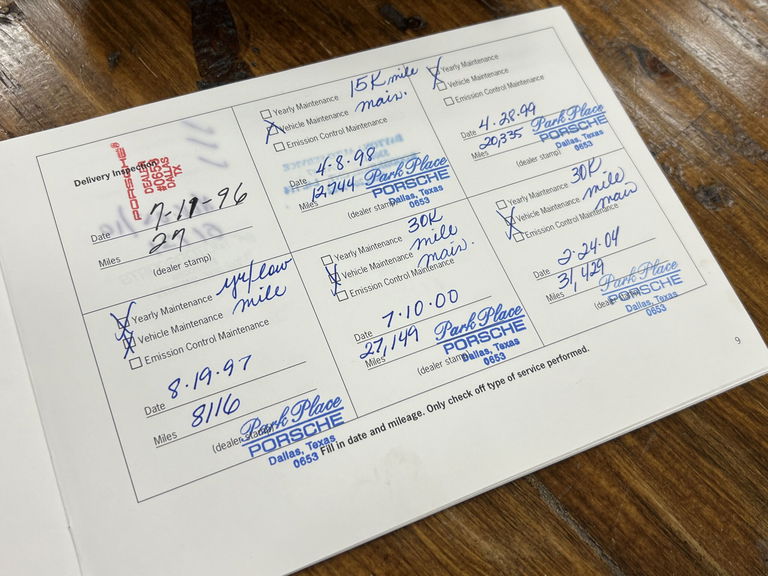 Delivery Inspection
PORSCHE®
DEALER
#0653
DALLAS
TX
Date 7-17-96
Miles 27
(dealer stamp)
15K mile
Yearly Maintenance
Vehicle Maintenance main.
Emission Control Maintenance
Date 4-8-98
Miles 12,744
Park Place
PORSCHE
Dallas, Texas
0653
(dealer stamp)
Yearly Maintenance
Vehicle Maintenance
Emission Control Maintenance
Date 4-28-99
Miles 20,335
Park Place
PORSCHE
Dallas, Texas
0653
(dealer stamp)
yr/low
Yearly Maintenance
Vehicle Maintenance mile
Emission Control Maintenance
Date 8-19-97
Miles 8116
(dealer stamp)
Park Place
PORSCHE
Dallas, Texas
0653
30K
Yearly Maintenance mile
Vehicle Maintenance main.
Emission Control Maintenance
Date 7-10-00
Miles 27,149
(dealer stamp)
Park Place
PORSCHE
Dallas, Texas
0653
30K
Yearly Maintenance mile
Vehicle Maintenance main
Emission Control Maintenance
Date 2-24-04
Miles 31,429
(dealer stamp)
Park Place
PORSCHE
Dallas, Texas
0653
Fill in date and mileage. Only check off type of service performed.
9